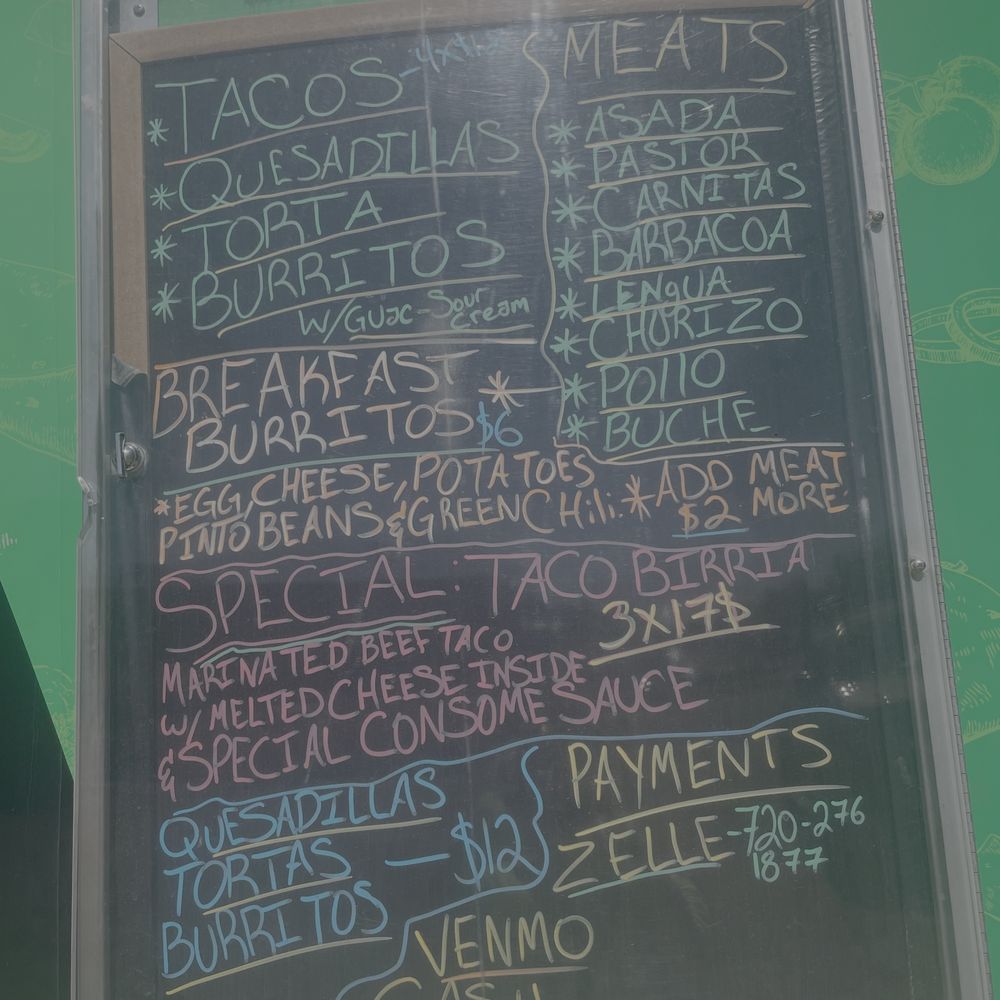 TACOS-4x$12
* QUESADILLAS
* TORTA
* BURRITOS
W/Guac-Sour Cream
MEATS
* ASADA
* PASTOR
* CARNITAS
* BARBACOA
* LENGUA
* CHORIZO
* POllO
* BUCHE
BREAKFAST *
BURRITOS $6
*EGG, CHEESE, POTATOES
PINTO BEANS & GREEN CHili.
*ADD MEAT
$2 MORE
SPECIAL: TACO BIRRIA
3X17$
MARINATED BEEF TACO
W/ MELTED CHEESE INSIDE
& SPECIAL CONSOME SAUCE
QUESADILLAS
TORTAS — $12
BURRITOS
PAYMENTS
ZELLE-720-276
1877
VENMO
CASH